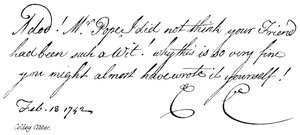 Adod! Mr Pope I did not think your Friend
had been such a Wit! why this is so very fine
you might almost have wrote it yourself!
Feb. 18 1742 C C
Colley Cibber.